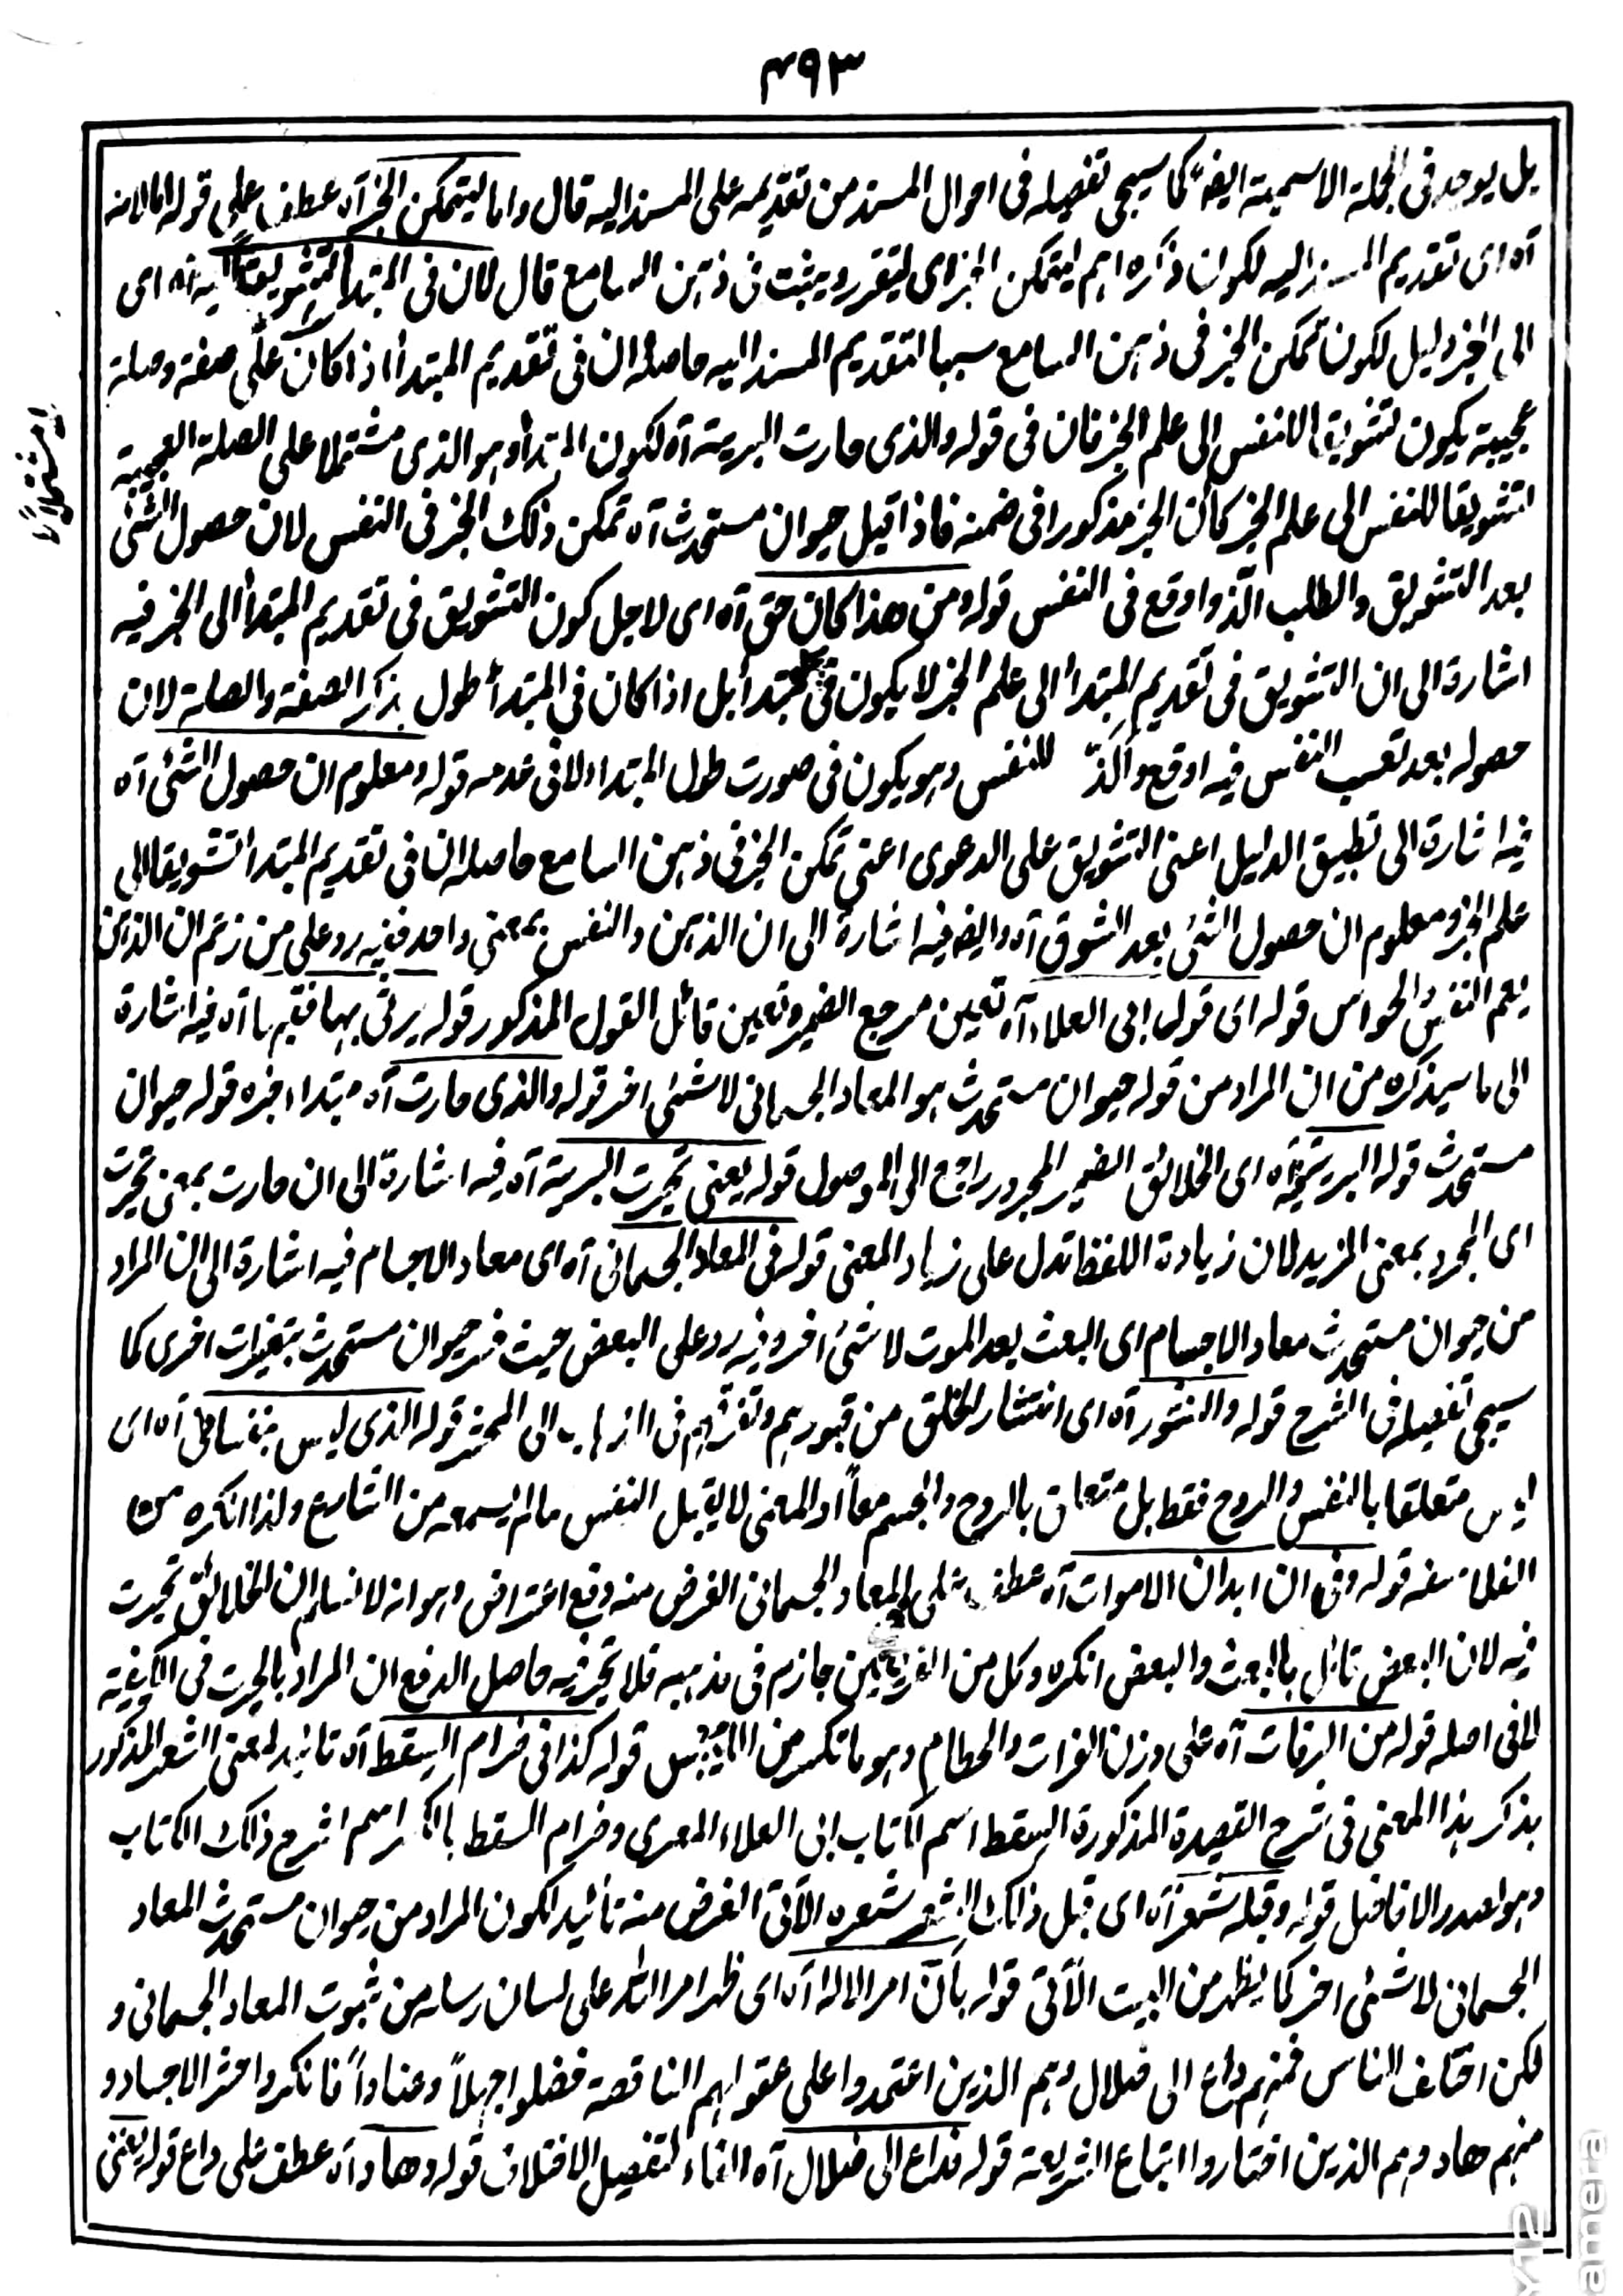 ۴۹۳
بل يوجد فى الجملة الاسمية ايضا كما سيجى تفصيله فى احوال المسند من تقديمه على المسند اليه قال واما ليتمكن الخبر آه عطف على قوله اما لانه
آه اى تقديم المسند اليه لكون ذكره اهم ليتمكن الخبر اى ليتقرر ويثبت فى ذهن السامع قال لان فى المبتدأ تشويقا اليه آه اى
الى الخبر دليل لكون تمكن الخبر فى ذهن السامع سببا لتقديم المسند اليه حاصله ان فى تقديم المبتدأ اذا كان على صفة وصلة
عجيبة يكون تشويق الانفس الى علم الخبر فان فى قوله والذى حارت البرية آه لكون المبتدأ وهو الذى مشتملا على الصلة العجيبة
تشويقا للنفس الى علم الخبر كأن الخبر مذكورا فى ضمنه فاذا قيل حيوان مستحدث آه تمكن ذلك الخبر فى النفس لان حصول الشئ
بعد التشويق والطلب الذ واوقع فى النفس قوله ومن هذا كان حق آه اى لاجل كون التشويق فى تقديم المبتدأ الى الخبر فيه
اشارة الى ان التشويق فى تقديم المبتدأ الى علم الخبر لا يكون فى كل مبتدأ بل اذا كان فى المبتدأ طول بذكر الصفة والصلة لان
حصوله بعد تعب النفس فيه اوقع والذّ للنفس وهو يكون فى صورت طول المبتداء لا فى عدمه قوله ومعلوم ان حصول الشئ آه
فيه اشارة الى تطبيق الدليل اعنى التشويق على الدعوى اعنى تمكن الخبر فى ذهن السامع حاصله ان فى تقديم المبتدأ تشويقا الى
علم الخبر ومعلوم ان حصول الشئ بعد الشوق آه وايضا فيه اشارة الى ان الذهن والنفس بمعنى واحد ففيه رد على من زعم ان الذهن
يعم النفس والحواس قوله اى قول ابى العلاء آه تعيين مرجع الضمير وتعين قائل القول المذكور قوله يرثى بها فقيها آه فيه اشارة
الى ما سيذكره من ان المراد من قوله حيوان مستحدث هو المعاد الجسمانى لا شئى اخر قوله والذى حارت آه مبتداء خبره قوله حيوان
مستحدث قوله البرية فيه آه اى الخلائق الضمير المجرور راجع الى الموصول قوله يعنى تحيرت البرية آه فيه اشارة الى ان حارت بمعنى تحيرت
اى المجرد بمعنى المزيد لان زيادة اللفظ تدل على زياد المعنى قوله فى المعاد الجسمانى آه اى معاد الاجسام فيه اشارة الى ان المراد
من حيوان مستحدث معاد الاجسام اى البعث بعد الموت لا شئ اخر وفيه رد على البعض حيث فسر حيوان مستحدث بتغيرات اخرى كما
سيجى تفصيله فى الشرح قوله والنشور آه اى انتشار الخلق من قبورهم وتفرقهم فى الذهاب الى المحشر قوله الذى ليس بنفسانى آه اى
ليس متعلقا بالنفس والروح فقط بل متعلق بالروح والجسم معاً او المعنى لا يقبل النفس مالم يسمعه من الشارع ولذا انكره من
الفلاسفه قوله وفى ان ابدان الاموات آه عطف على المعاد الجسمانى الغرض منه دفع اعتراض وهو انه لا نسلم ان الخلائق تحيرت
فيه لان البعض قائل بالبعث والبعض انكره وكل من الفريقين جازم فى مذهبه فلا تحير فيه حاصل الدفع ان المراد بالحيرت فى الكيفية
لا فى اصله قوله من الرفات آه على وزن الفرات والحطام وهو ما تكسر من اليابس قوله كذا فى ضرام السقط آه تائيد لمعنى الشعر المذكور
بذكر هذا المعنى فى شرح القصيدة المذكورة السقط اسم الكتاب ابى العلاء المعرى وضرام السقط بالكسر اسم شرح ذلك الكتاب
وهو لصدر الافاضل قوله وقبله شعر آه اى قبل ذلك الشعر شعره الآتى الغرض منه تأئيد لكون المراد من حيوان مستحدث المعاد
الجسمانى لا شئى اخر كما يظهر من البيت الآتى قوله بان امر الاله آه اى ظهر امر الله على لسان رسله من ثبوت المعاد الجسمانى و
لكن اختلف الناس فمنهم داع الى ضلال وهم الذين اعتمدوا على عقولهم الناقصة فضلوا جهلاً وعناداً فانكروا حشر الاجساد و
منهم هاد وهم الذين اختاروا اتباع الشريعة قوله فداع الى ضلال آه الفاء لتفصيل الاختلاف قوله وهاد آه عطف على داع قوله يعنى